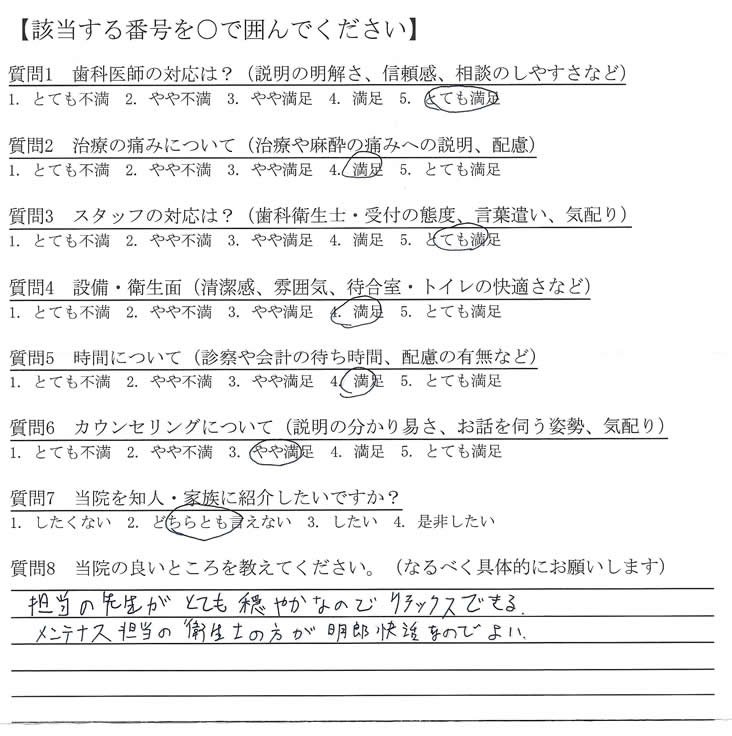 【該当する番号を〇で囲んでください】
質問1　歯科医師の対応は？（説明の明解さ、信頼感、相談のしやすさなど）
1. とても不満　2. やや不満　3. やや満足　4. 満足　5. とても満足
質問2　治療の痛みについて（治療や麻酔の痛みへの説明、配慮）
1. とても不満　2. やや不満　3. やや満足　4. 満足　5. とても満足
質問3　スタッフの対応は？（歯科衛生士・受付の態度、言葉遣い、気配り）
1. とても不満　2. やや不満　3. やや満足　4. 満足　5. とても満足
質問4　設備・衛生面（清潔感、雰囲気、待合室・トイレの快適さなど）
1. とても不満　2. やや不満　3. やや満足　4. 満足　5. とても満足
質問5　時間について（診察や会計の待ち時間、配慮の有無など）
1. とても不満　2. やや不満　3. やや満足　4. 満足　5. とても満足
質問6　カウンセリングについて（説明の分かり易さ、お話を伺う姿勢、気配り）
1. とても不満　2. やや不満　3. やや満足　4. 満足　5. とても満足
質問7　当院を知人・家族に紹介したいですか？
1. したくない　2. どちらとも言えない　3. したい　4. 是非したい
質問8　当院の良いところを教えてください。（なるべく具体的にお願いします）
担当の先生が とても 穏やかなので リラックスできる.
メンテナス担当の 衛生士の方が 明郎快活なので よい.